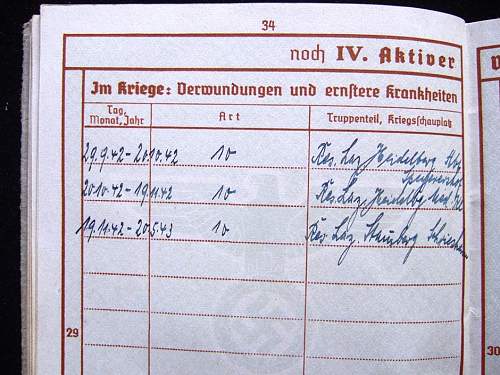 34
noch IV. Aktiver
Im Kriege: Verwundungen und ernstere Krankheiten
Tag, Monat, Jahr
Art
Truppenteil, Kriegsschauplatz
29.9.42-20.10.42 10 Res. Laz. Heidelberg
20.10.42-19.11.42 10 Res. Laz. Heidelbg.
19.11.42-20.5.43 10 Res. Laz.
29
30